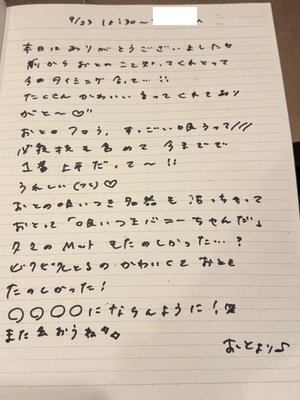 9/23 18:30〜
本日はありがとうございました
前からおとのこと知ってくれとって
今のタイミング会って…!!
たくさんかわいい言ってくれてあり
がと〜♡
おとのフロう、すっごい吸うって///
必殺技も含めて今までで
1番上手だって〜!!
うれしい(つく)♡
おとの吸いつき
おとって「吸いつきバニーちゃんだ」
久々のMutもたのしかった…?
ビクビクとるのかわいくておとも
たのしかった!
〇〇〇〇にならんように!
また会おうね
おとより♪